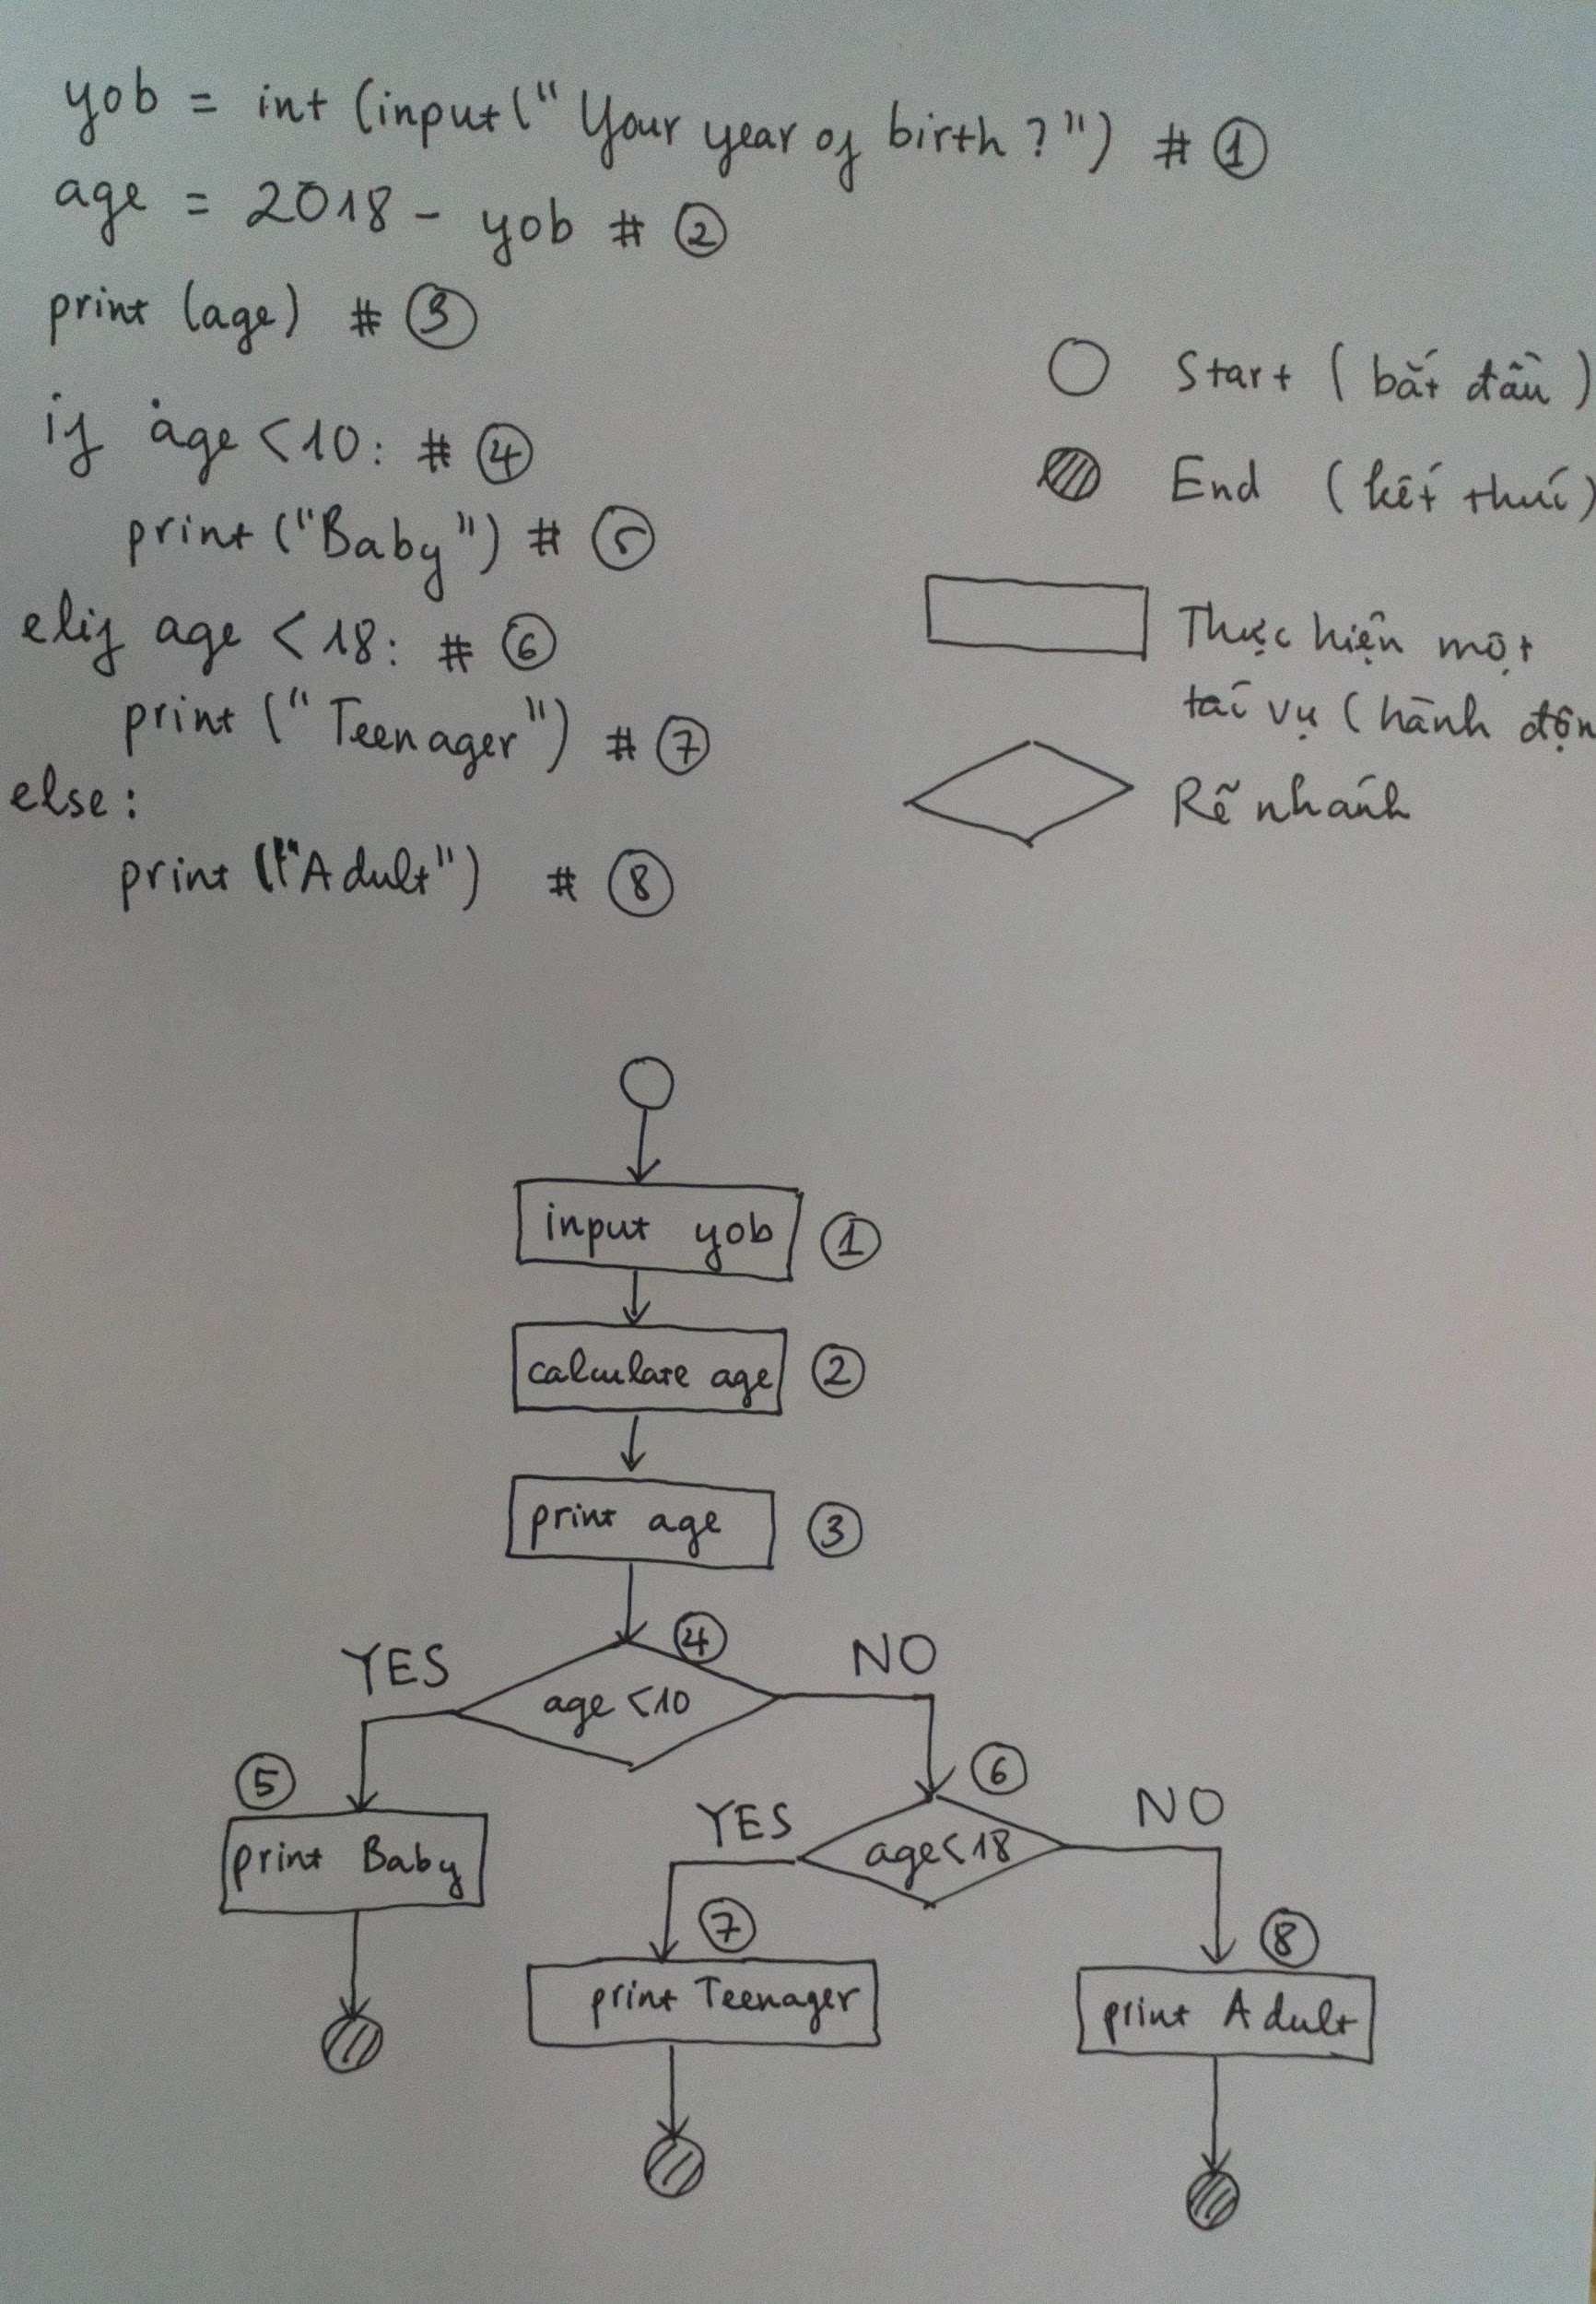 yob = int (input(" Your year of birth ? ") # ①
age = 2018 - yob # ②
print (age) # ③
if age < 10: # ④
print ("Baby") # ⑤
elif age < 18: # ⑥
print (" Teenager ") # ⑦
else:
print ("Adult") # ⑧
Start ( bắt đầu )
End ( kết thúc )
Thực hiện một
tác vụ ( hành độn
Rẽ nhánh
input yob ①
calculate age ②
print age ③
④
YES NO
age < 10
⑤ ⑥
YES NO
print Baby age < 18
⑦ ⑧
print Teenager print Adult